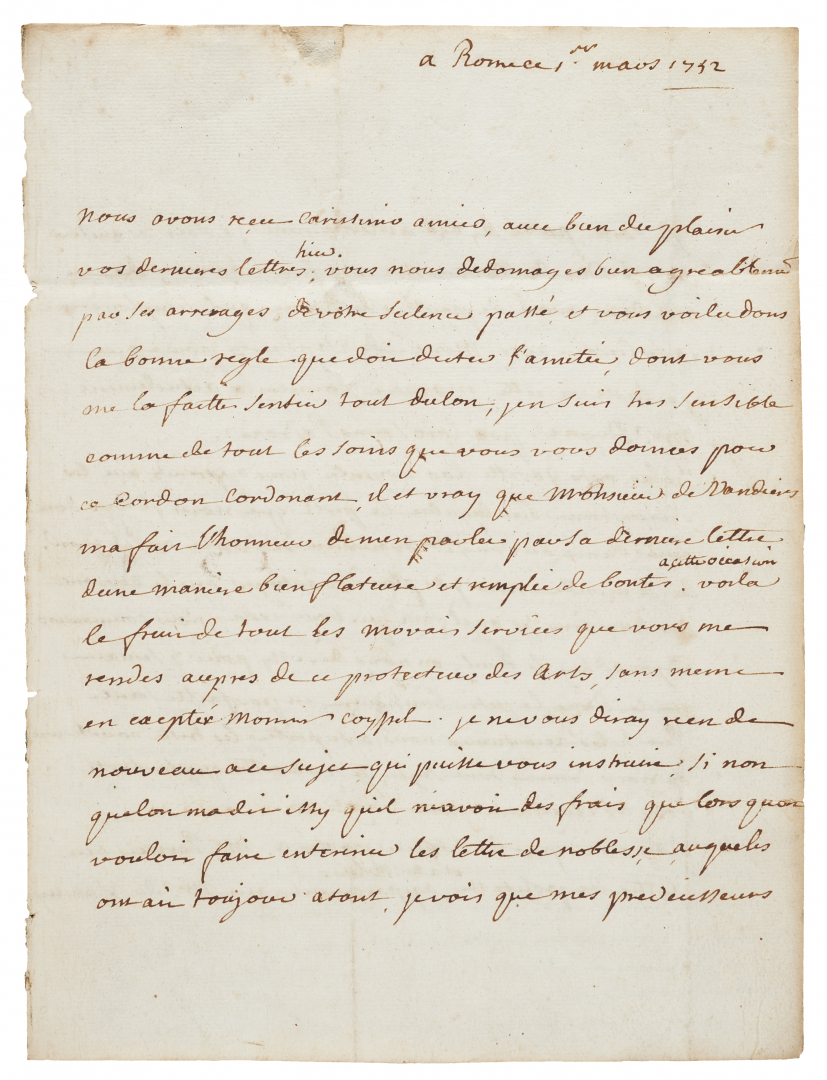 a Rome ce 1er mars 1752
nous avons reçeu carissimo amico, avec bien du plaisir
hier.
vos dernieres lettres, vous nous dedomages bien agreablemt
par ses arrerages de votre scilence passé, et vous voila dans
la bonne regle que doit dicter l'amitié, dont vous
me la faitte sentir tout dulon, jen suis tres sensible
comme de tout les soins que vous vous donnes pour
ce Cordon Cordonant, il et vray que Monsieur de Vandieres
ma fait l'honneur de men parler par sa derniere lettre
a cette occasion
dune maniere bien flateuse et remplie de bontés. voila
le fruit de tout les movais services que vous me
rendes aupres de ce protecteur des Arts, sans meme
en excepter Monsieur Coypel. je ne vous diray rien de
nouveau a ce sujet qui puisse vous instruire, si non
quelon ma dit issy quil n'avoit des frais que lors quon
vouloit faire enteriner les lettre de noblesse, auquels
ont ait toujour atout, je vois que mes predecesseurs